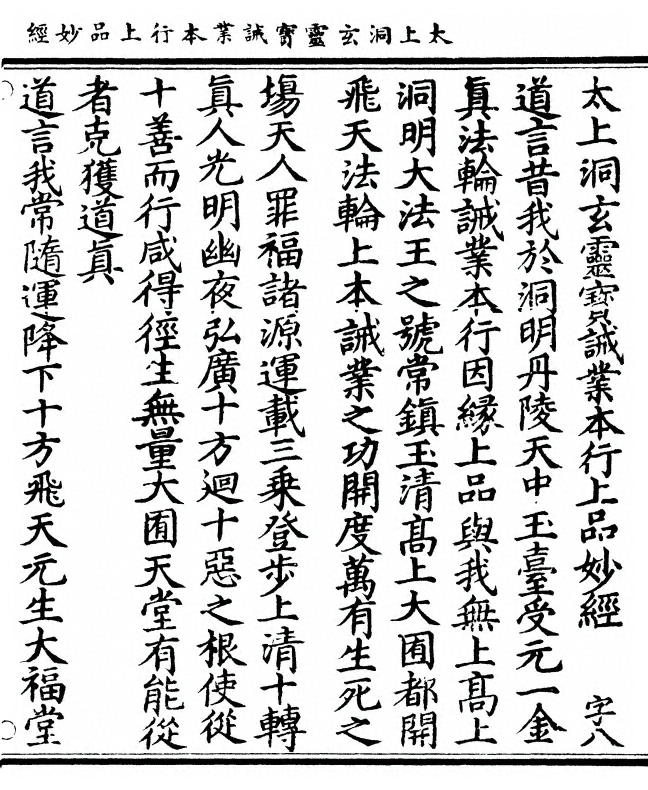 太上洞玄靈寳誡業本行上品妙經
太上洞玄靈寳誡業本行上品妙經 字八
道言昔我於洞明丹陵天中玉臺受元一金
眞法輪誡業本行因緣上品與我無上髙上
洞明大法王之號常鎮玉清髙上大囿都開
飛天法輪上本誡業之功開度萬有生死之
塲天人罪福諸源運載三乗登歩上清十轉
眞人光明幽夜弘廣十方迴十惡之根使從
十善而行咸得徑生無量大囿天堂有能從
者克獲道眞
道言我常隨運降下十方飛天元生大福堂